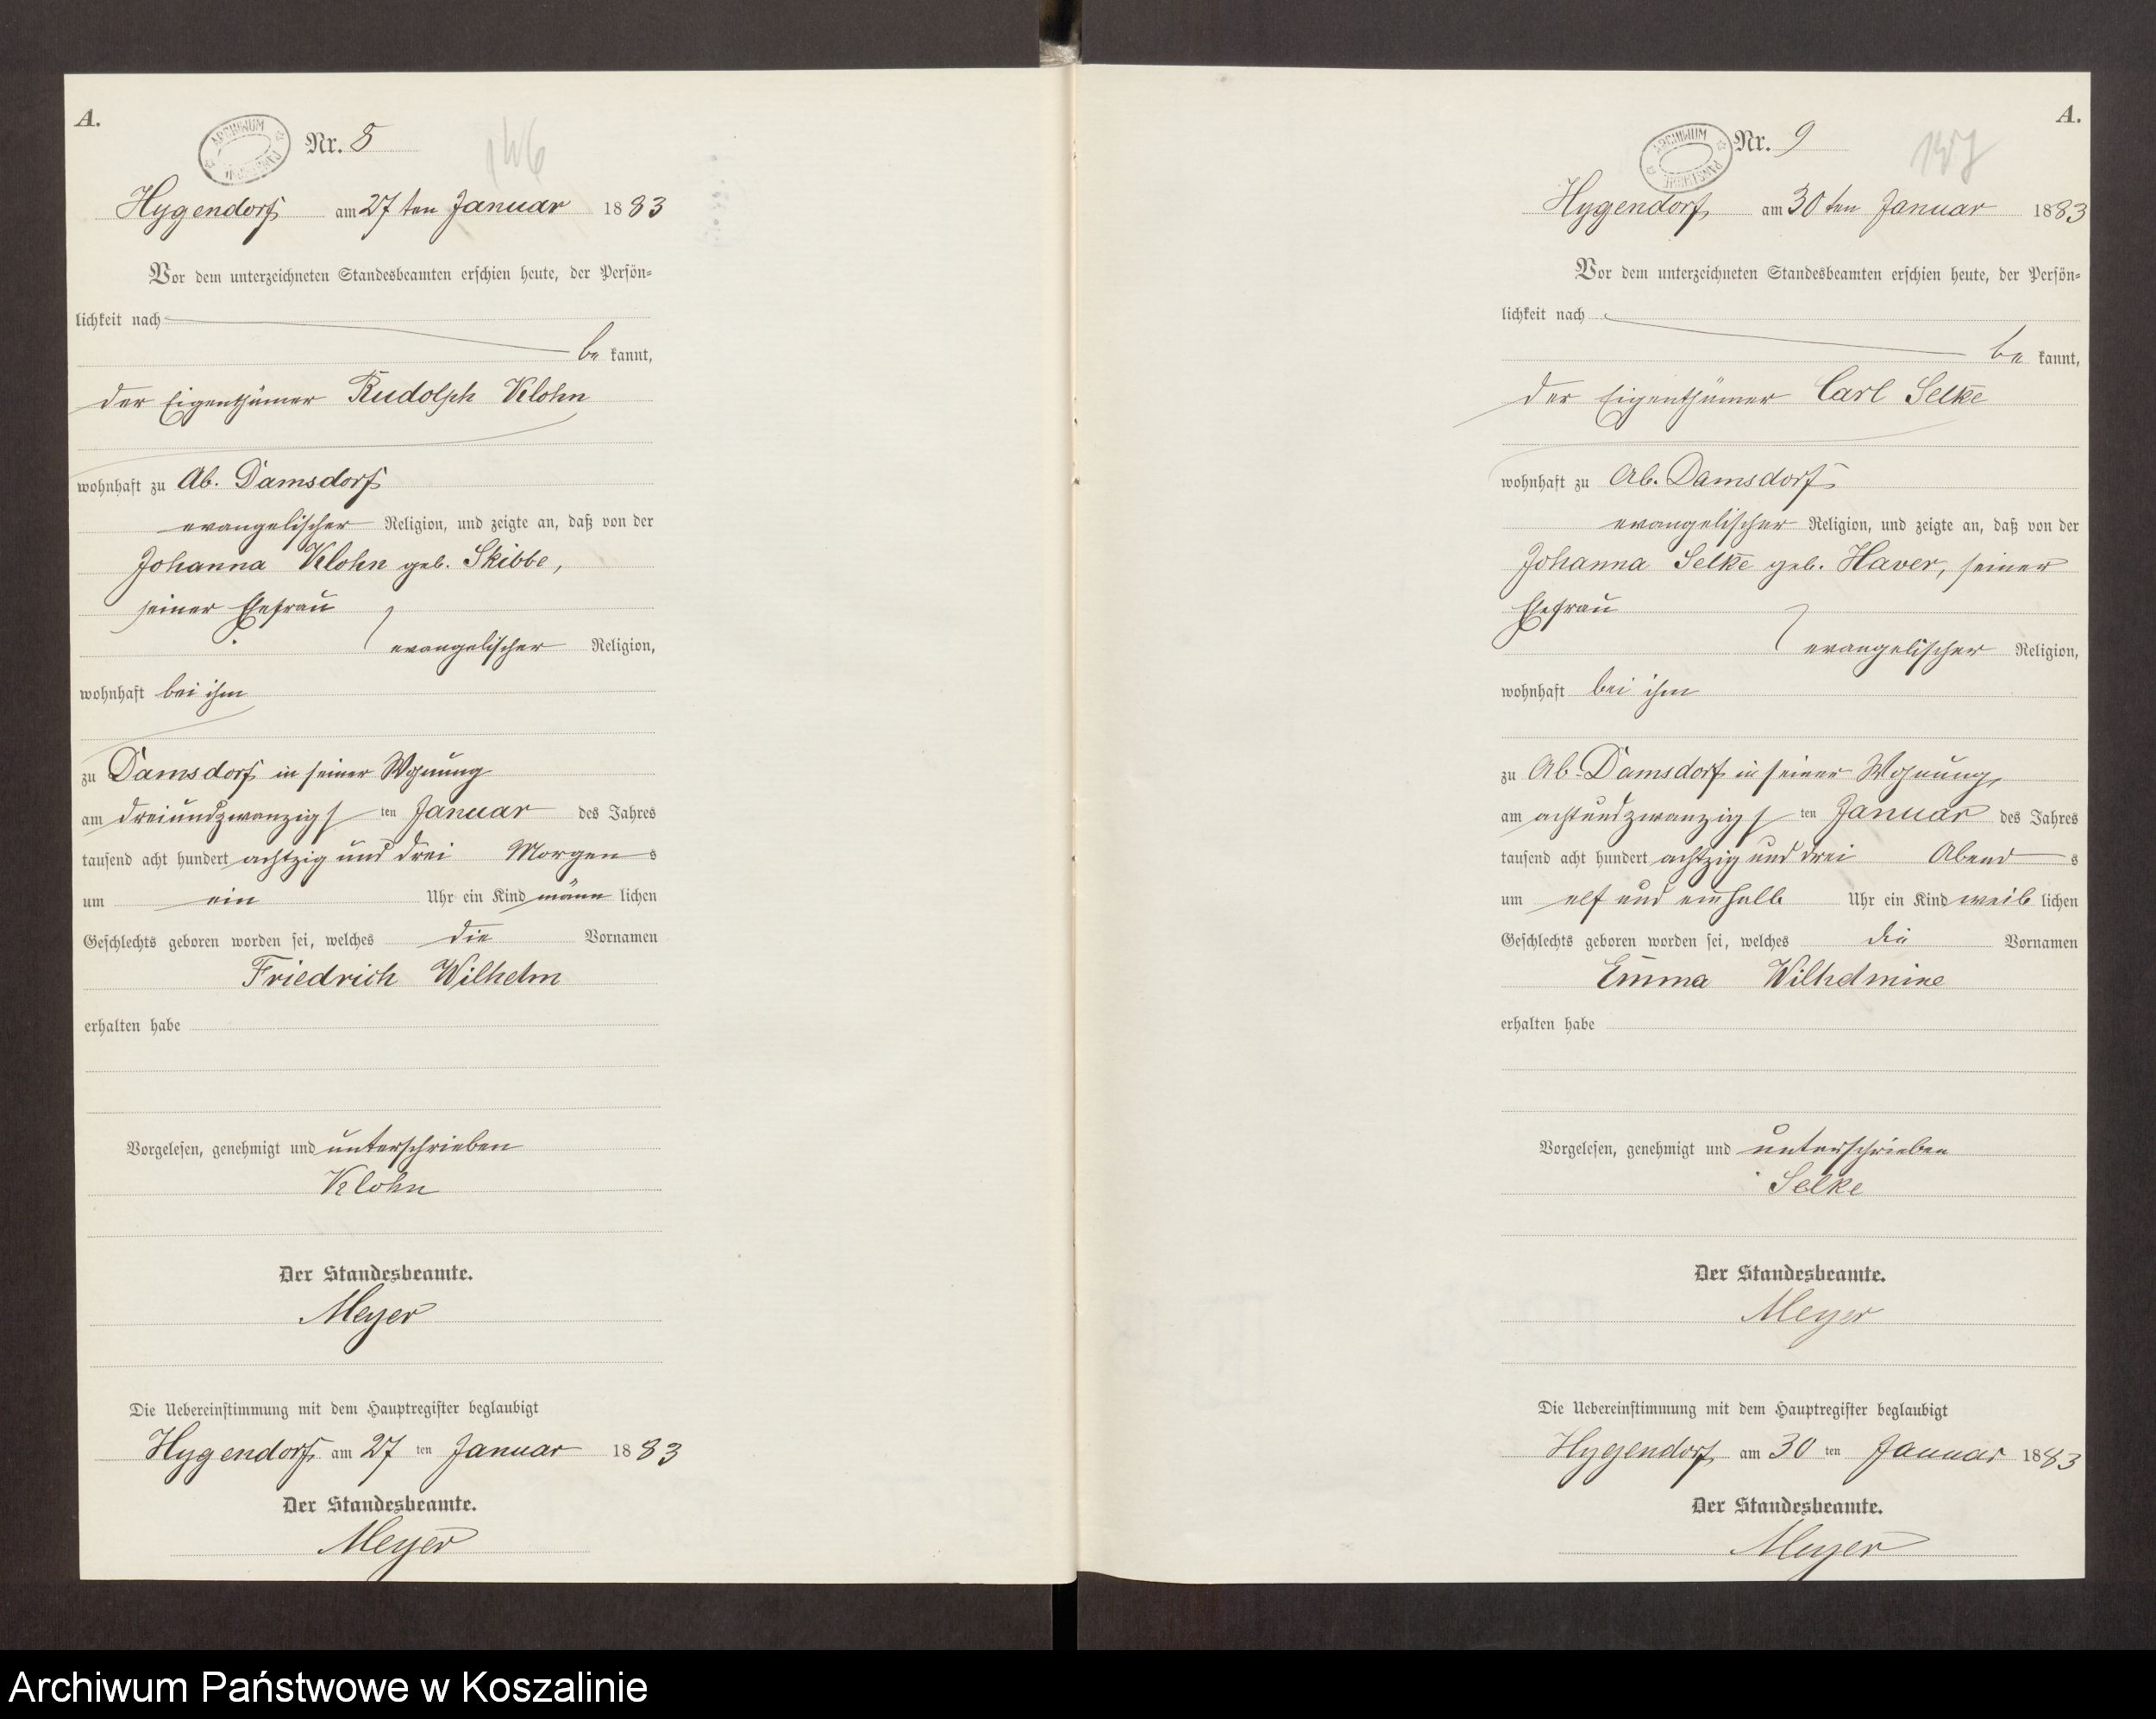 A.
ARCHIWUM PAŃSTWOWE
Nr. 8
146
Hygendorf am 27ten Januar 1883
Vor dem unterzeichneten Standesbeamten erschien heute, der Persön-
lichkeit nach
be kannt,
der Eigenthümer Rudolph Klohn
wohnhaft zu Ab. Damsdorf
evangelischer Religion, und zeigte an, daß von der
Johanna Klohn geb. Skibbe,
seiner Ehefrau
evangelischer Religion,
wohnhaft bei ihm
zu Damsdorf in seiner Wohnung
am dreiundzwanzigs ten Januar des Jahres
tausend acht hundert achtzig und drei Morgen s
um ein Uhr ein Kind männ lichen
Geschlechts geboren worden sei, welches die Vornamen
Friedrich Wilhelm
erhalten habe
Vorgelesen, genehmigt und unterschrieben
Klohn
Der Standesbeamte.
Meyer
Die Uebereinstimmung mit dem Hauptregister beglaubigt
Hygendorf am 27 ten Januar 1883
Der Standesbeamte.
Meyer
A.
ARCHIWUM PAŃSTWOWE
Nr. 9
Hygendorf am 30ten Januar 1883
Vor dem unterzeichneten Standesbeamten erschien heute, der Persön-
lichkeit nach
be kannt,
der Eigenthümer Carl Selke
wohnhaft zu Ab. Damsdorf
evangelischer Religion, und zeigte an, daß von der
Johanna Selke geb. Haver, seiner
Ehefrau
evangelischer Religion,
wohnhaft bei ihm
zu Ab. Damsdorf in seiner Wohnung,
am achtundzwanzigs ten Januar des Jahres
tausend acht hundert achtzig und drei Abend s
um elf und einhalb Uhr ein Kind weib lichen
Geschlechts geboren worden sei, welches die Vornamen
Emma Wilhelmine
erhalten habe
Vorgelesen, genehmigt und unterschrieben
Selke
Der Standesbeamte.
Meyer
Die Uebereinstimmung mit dem Hauptregister beglaubigt
Hygendorf am 30 ten Januar 1883
Der Standesbeamte.
Meyer
Archiwum Państwowe w Koszalinie